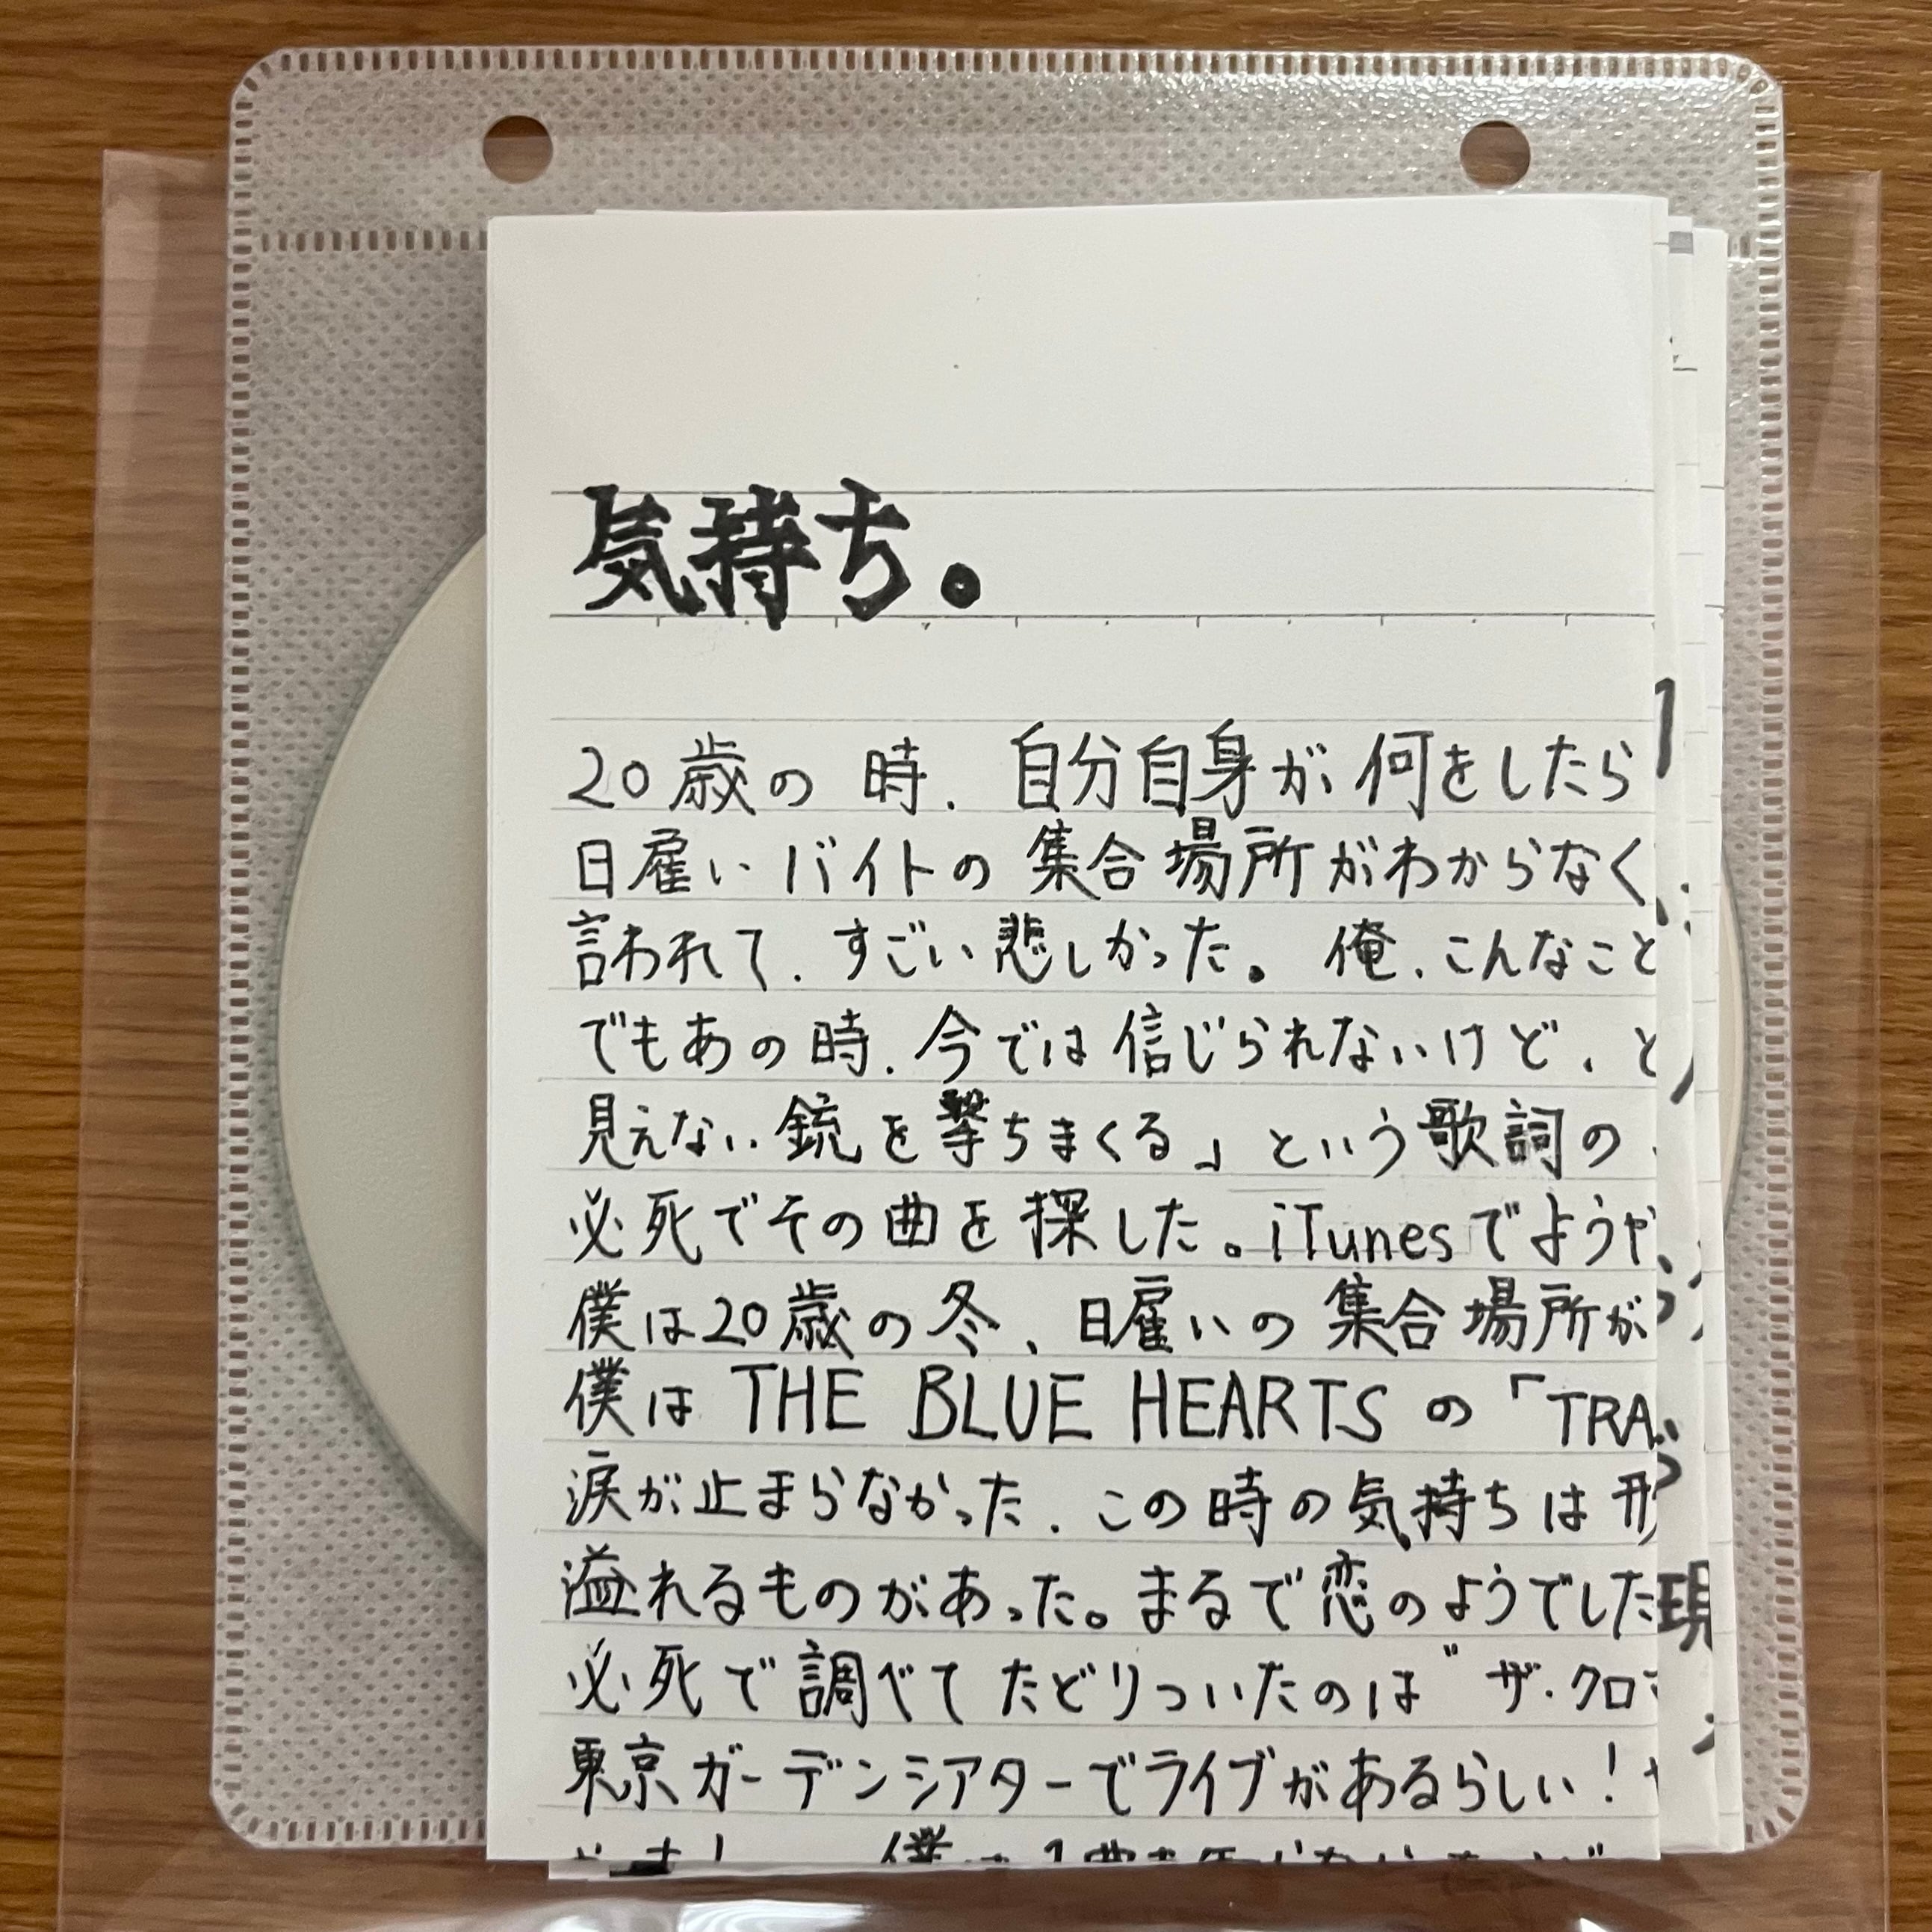 気持ち。
20歳の時、自分自身が何をしたら
日雇いバイトの集合場所がわからなく
言われて、すごい悲しかった。俺、こんなこと
でもあの時、今では信じられないけど、と
見えない銃を撃ちまくる」という歌詞の
必死でその曲を探した。iTunesでようや
僕は20歳の冬、日雇いの集合場所が
僕は THE BLUE HEARTS の「TRA
涙が止まらなかった、この時の気持ちは形
溢れるものがあった。まるで恋のようでした
必死で調べてたどりついたのは"ザ・クロマ
東京ガーデンシアターでライブがあるらしい!
現